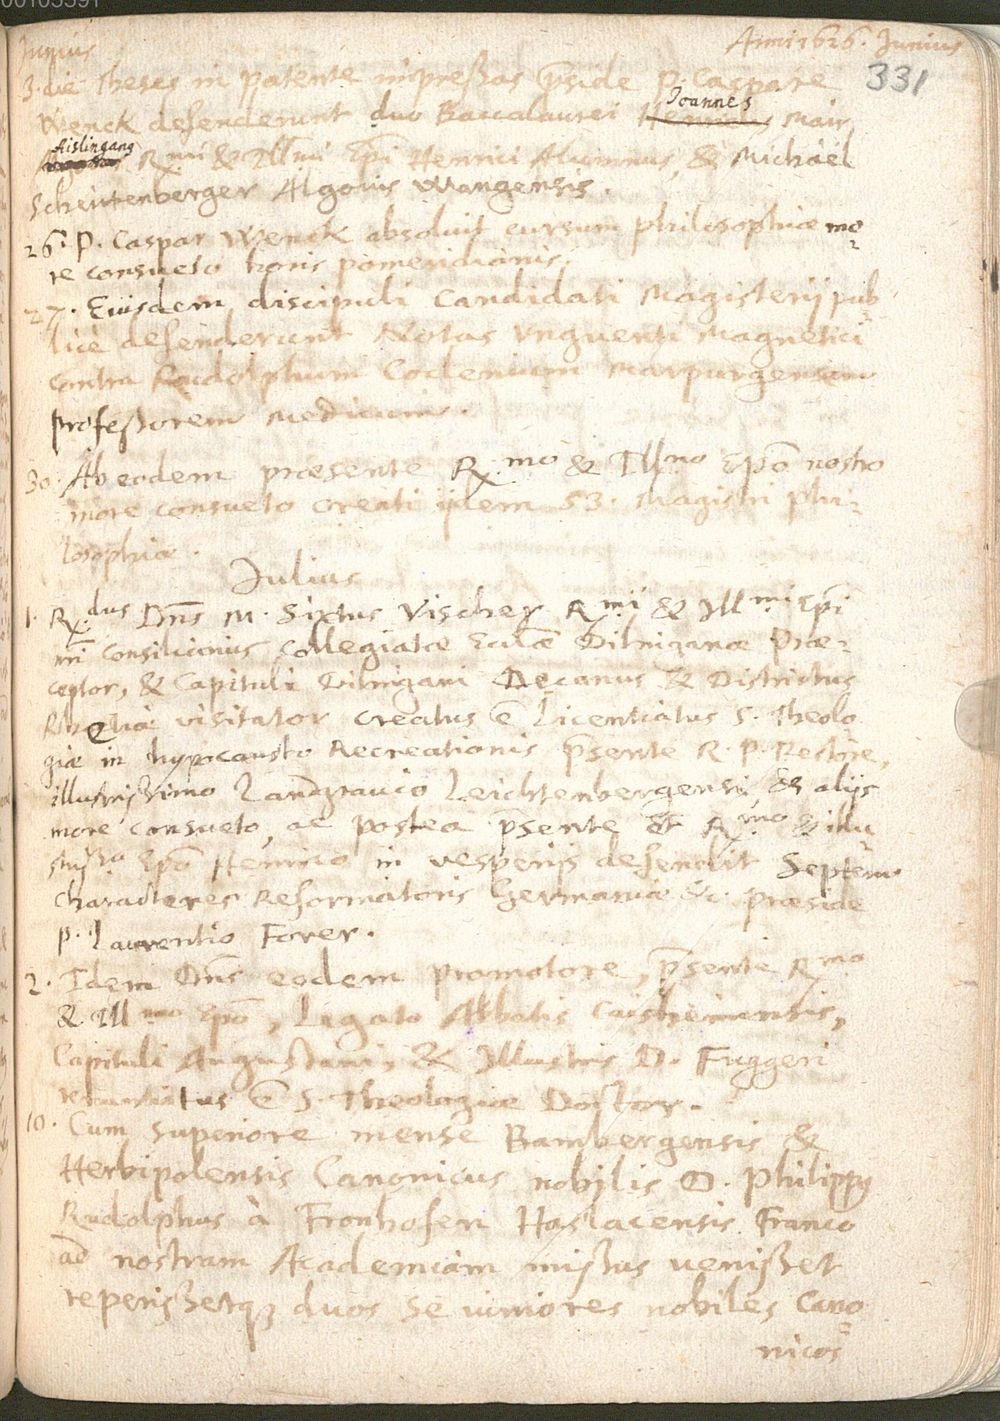 Junius
Anni 1626. Junius
331
3. die Theses in patente impreßas p̄side P. Caspare
Wenck defenderunt duo Baccalaurei Joannes Mair
Aislingang R.mi & Illmi Ep̄i Henrici Alumnus, & Michaël
Scheutenberger Algoius Wangensis.
26. P. Caspar Wenck absoluit cursum philosophiæ mo=
re consueto horis pomeridianis.
27. Eiusdem discipuli Candidati Magisterij pub=
licè defenderunt Notas Vnguenti Magnetici
contra Rudolphum Goclenium Marpurgensem
profeßorem Medicum.
30. Ab eodem præsente R.mo & Illmo Ep̄o nostro
more consueto creati ijdem 53. Magistri phi=
losophiæ.
Julius
1. R.dus Dn̄s M. Sixtus Vischer R.mi & Ill.mi Ep̄i
nr̄i consiliarius, Collegiatæ Eccl̄æ Dilinganæ Præ=
ceptor, & Capituli Dilingani Decanus & Districtus
Rhetiæ visitator creatus ē Licentiatus S. Theolo=
giæ in hypocausto Recreationis p̄sente R. P. Rectore,
illustrissimo Landgrauio Leichtenbergensi, & alijs
more consueto, ac postea p̄sente & R.mo & illu=
strißo Ep̄o Henrico in vesperis defendit Septem
characteres Reformatoris Germaniæ &c. præside
P. Laurentio Forer.
2. Idem Dn̄s eodem promotore, p̄sente Rmo
& Illmo Ep̄o, Legato Abbatis Caishemensis,
Capituli Augustani, & Illustris D. Fuggeri
renuntiatus ē S. Theologiæ Doctor.
10. Cum superiore mense Bambergensis &
Herbipolensis Canonicus nobilis D. Philippus
Rudolphus à Fronhofen Haslacensis Franco
ad nostram Academiam mißus venißet
reperißetq3 duos se iuniores nobiles Cano=
nicos